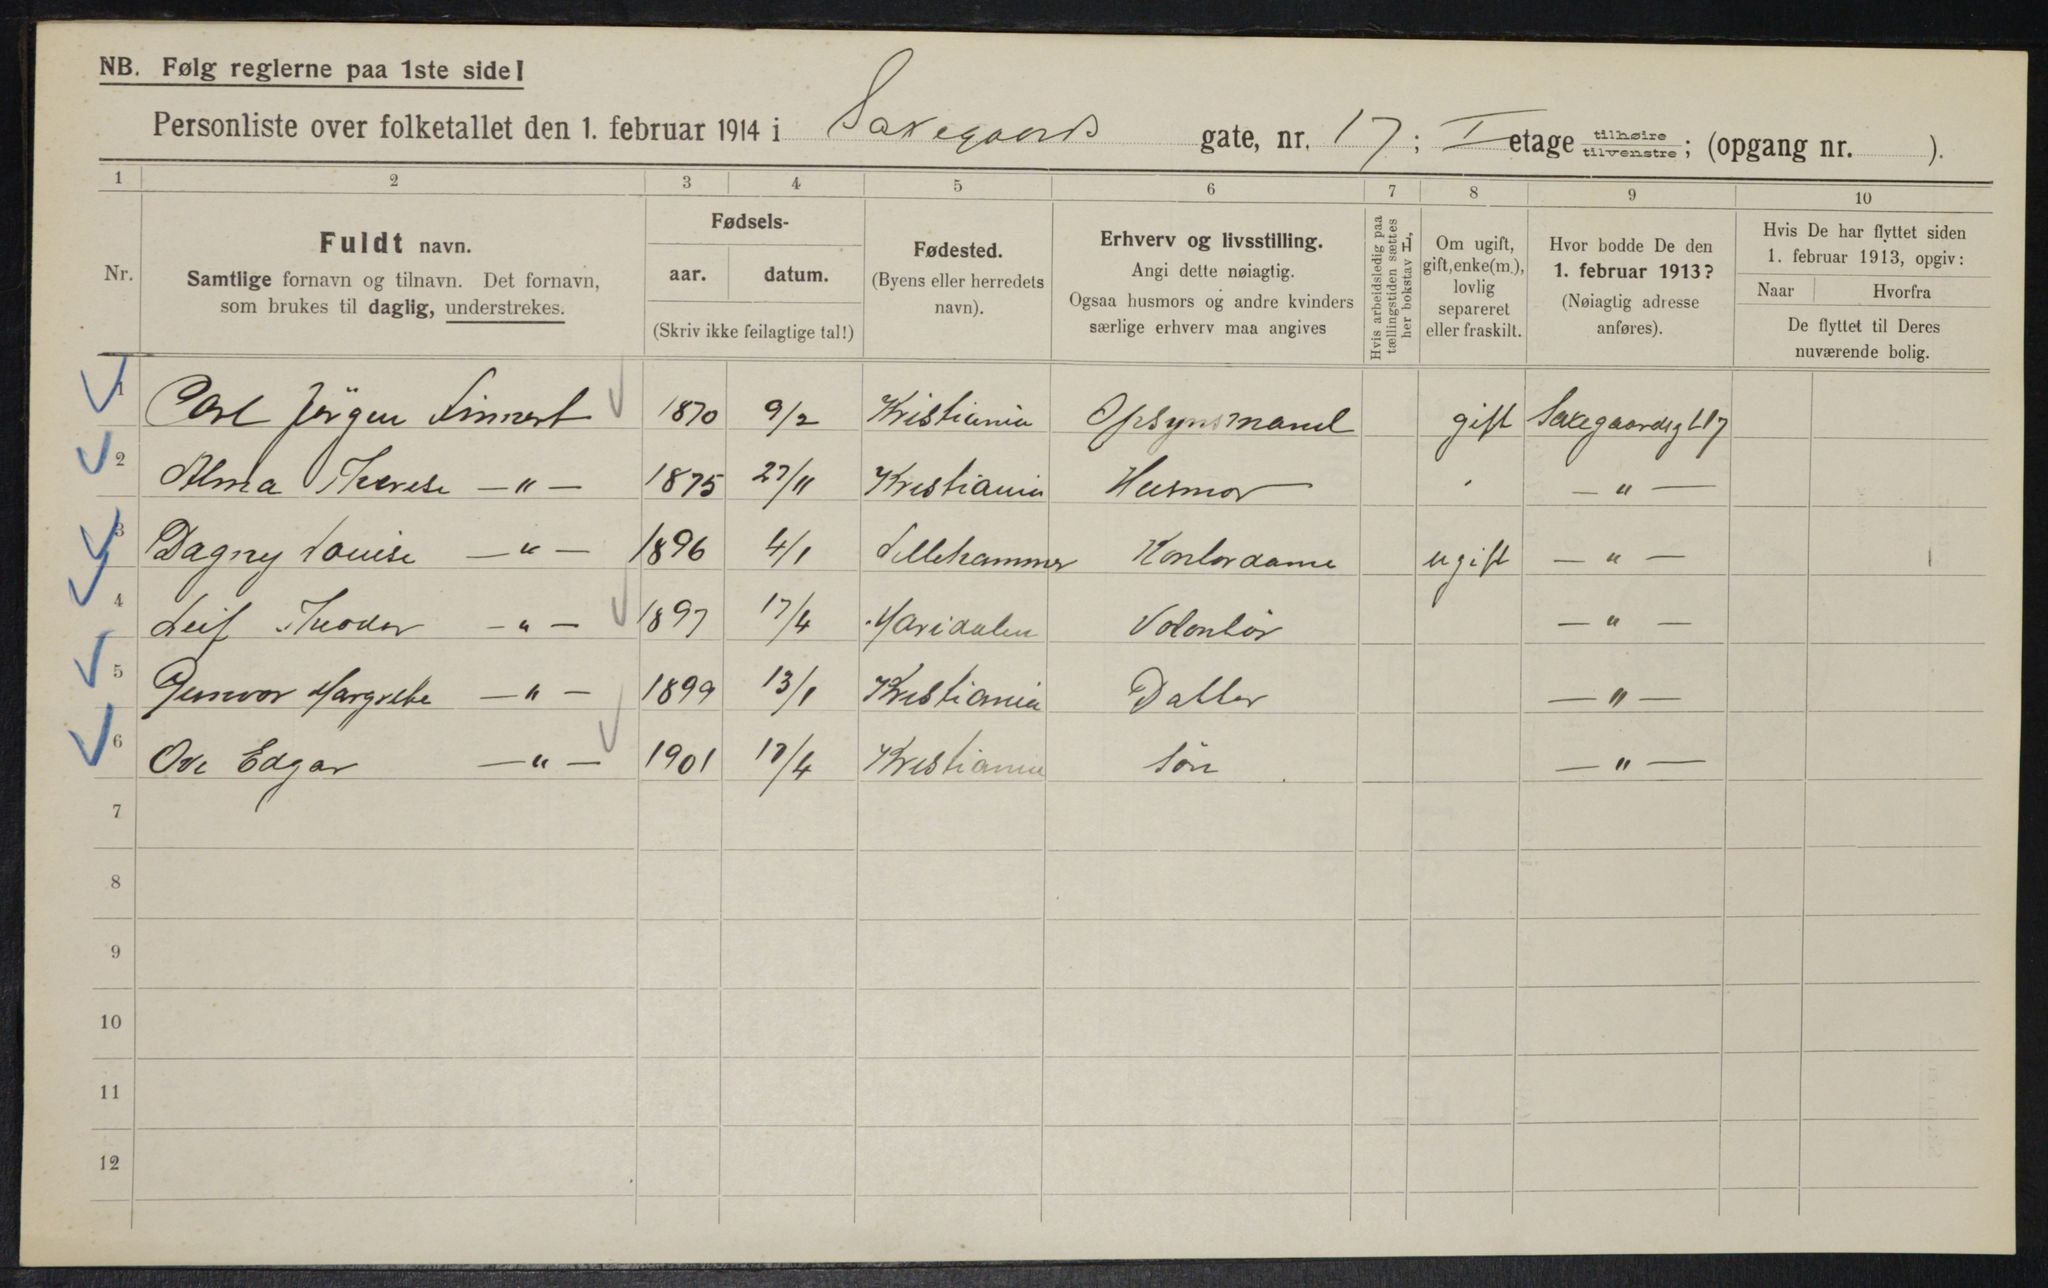 NB. Følg reglerne paa 1ste side!
Personliste over folketallet den 1. februar 1914 i Saxegaards gate, nr. 17; I etage tilhøire tilvenstre; (opgang nr. ).
1 2 3 4 5 6 7 8 9 10
Nr.
Fuldt navn.
Samtlige fornavn og tilnavn. Det fornavn,
som brukes til daglig, understrekes.
Fødsels-
aar. datum.
(Skriv ikke feilagtige tal!)
Fødested.
(Byens eller herredets
navn).
Erhverv og livsstilling.
Angi dette nøiagtig.
Ogsaa husmors og andre kvinders
særlige erhverv maa angives
Hvis arbeidsledig paa
tællingstiden sættes
her bokstav L,
Om ugift,
gift, enke(m.),
lovlig
separeret
eller fraskilt.
Hvor bodde De den
1. februar 1913?
(Nøiagtig adresse
anføres).
Hvis De har flyttet siden
1. februar 1913, opgiv:
Naar Hvorfra
De flyttet til Deres
nuværende bolig.
1 Carl Jörgen 1870 9/2 Kristiania Opsynsmand gift Saxegaardsgt 17
2 Alma Therese — " — 1875 27/11 Kristiania Husmor — " —
3 Dagny Louise — " — 1896 4/1 Lillehammer Kontordame ugift — " —
4 Leif Theodor — " — 1897 17/4 Maridalen Volontör — " —
5 Gunvor Margrethe — " — 1899 13/1 Kristiania Datter — " —
6 Ove Edgar — " — 1901 17/4 Kristiania Sön — " —
7
8
9
10
11
12